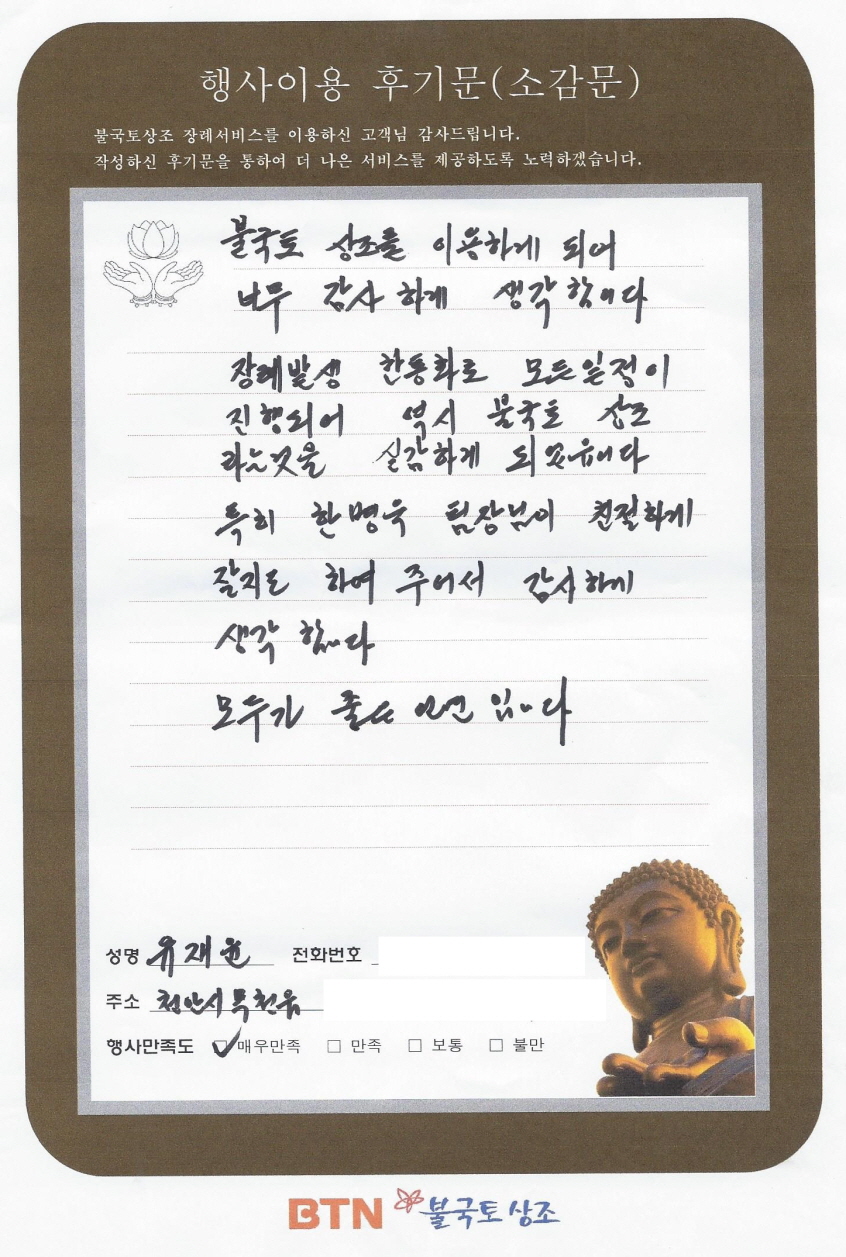 행사이용 후기문(소감문)
불국토상조 장례서비스를 이용하신 고객님 감사드립니다.
작성하신 후기문을 통하여 더 나은 서비스를 제공하도록 노력하겠습니다.
불국토 상조를 이용하게 되어
너무 감사하게 생각합니다
장례발생 한통화로 모든일정이
진행되어 역시 불국토 상조
라는것을 실감하게 되었습니다
특히 한병욱 팀장님이 친절하게
잘지도 하여 주어서 감사하게
생각 합니다
모두가 좋은 인연 입니다
성명 유재윤 전화번호
주소 천안시 목천읍
행사만족도 ☑ 매우만족 □ 만족 □ 보통 □ 불만
BTN 불국토 상조